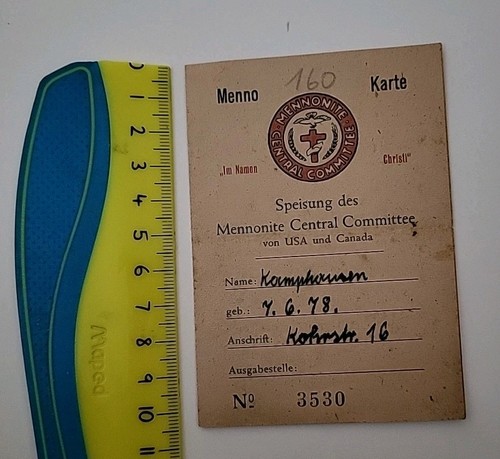 160
Menno Karte
MENNONITE
CENTRAL COMMITTEE
"Im Namen Christi"
Speisung des
Mennonite Central Committee
von USA und Canada
Name: Kamphausen
geb.: 7. 6. 78.
Anschrift: Kohrstr. 16
Ausgabestelle:
Nº 3530
0 1 2 3 4 5 6 7 8 9 10 11
Maped